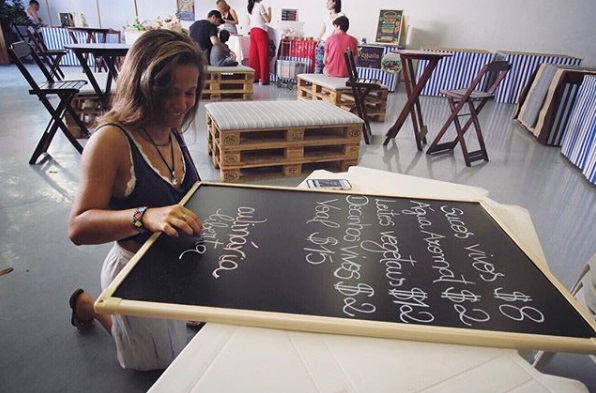 Sucos vivos $8
Água Aromat $2
Leites vegetais $12
Docinhos vivos $2
$15
culinária
liberta